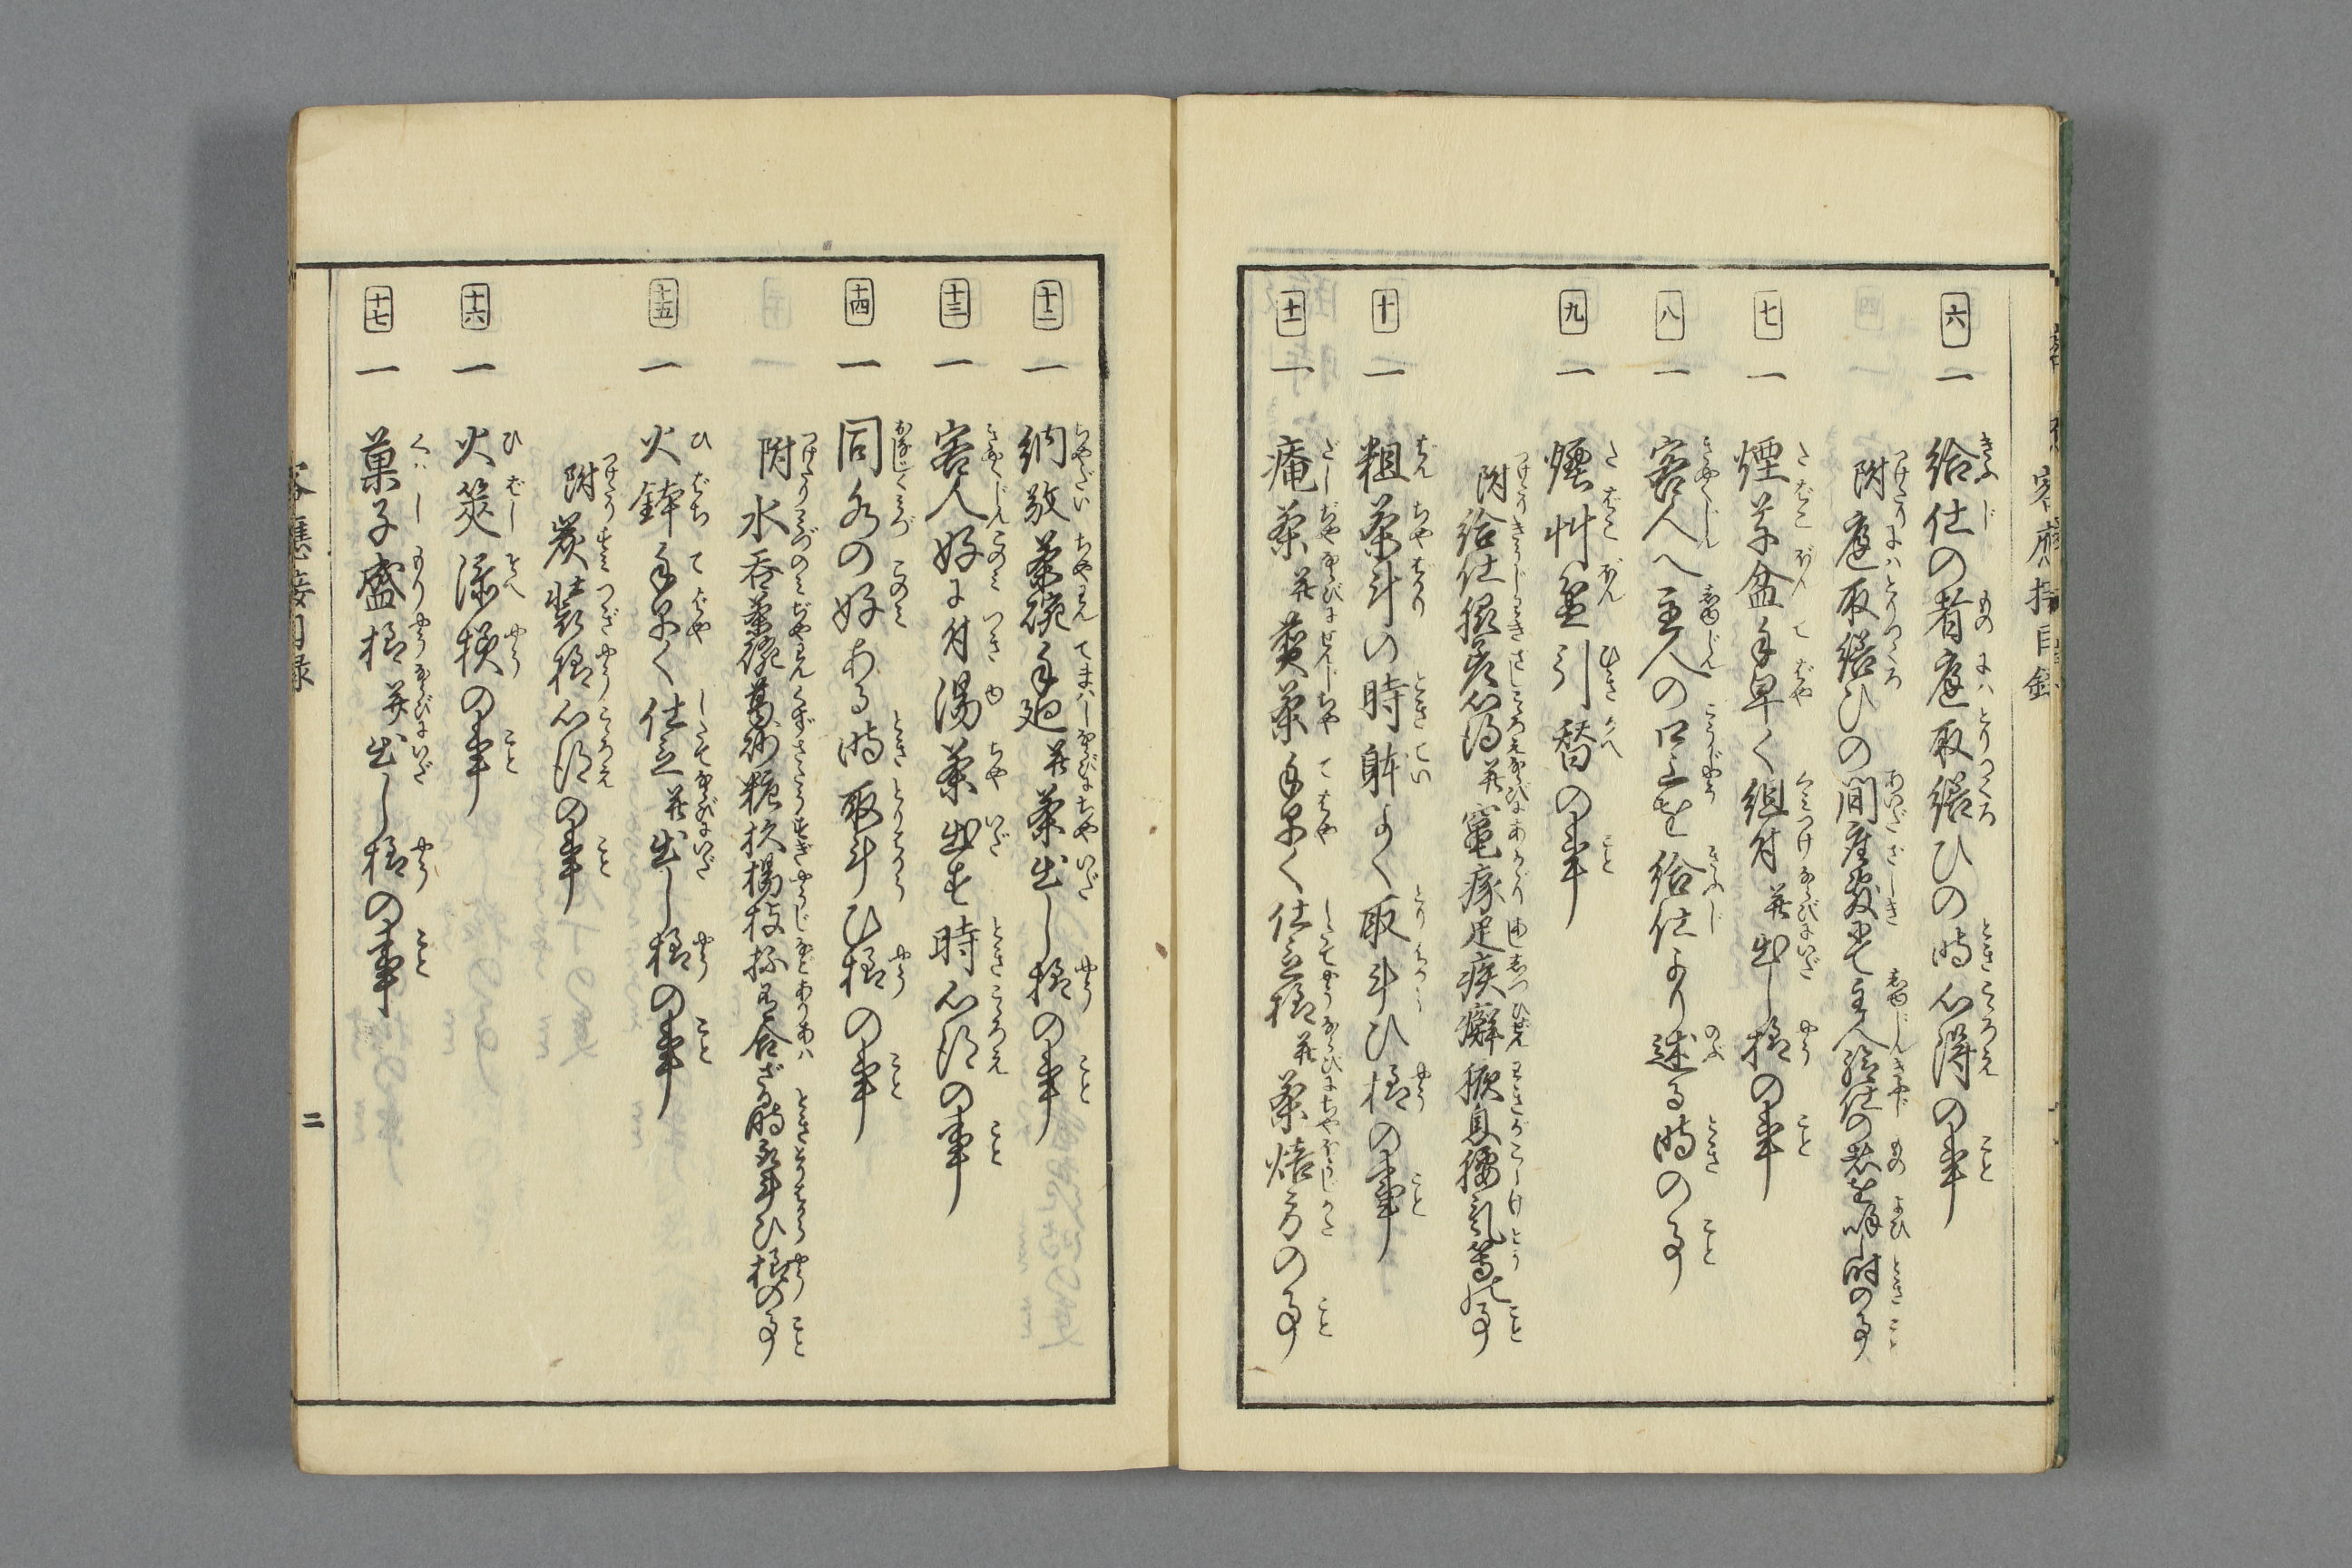 六 一 給仕の者庭取繕ひの時心得の事
附庭取繕ひの間座敷にて主人給仕の者を呼し時の事
七 一 煙草盆手早く組付并出し様の事
八 一 客人へ主人の口上を給仕より述る時の事
九 一 煙艸盆引替の事
附給仕腋差心得并竈瘃足疾癬掖臭腰気等の事
十 一 粗茶斗の時躰よく取斗ひ様の事
十一 一 庵茶并煎茶手早く仕立様并茶焙方の事
十二 一 茶碗手廻并茶出し様の事
十三 一 客人好に付湯茶出す時心得の事
十四 一 同水の好ある時取斗ひ様の事
附水呑茶碗葛砂糖杉楊枝抔有合ざる時取斗ひ様の事
十五 一 火鉢手早く仕立并出し様の事
附炭装様心得の事
十六 一 火筴添様の事
十七 一 菓子盛様并出し様の事
二